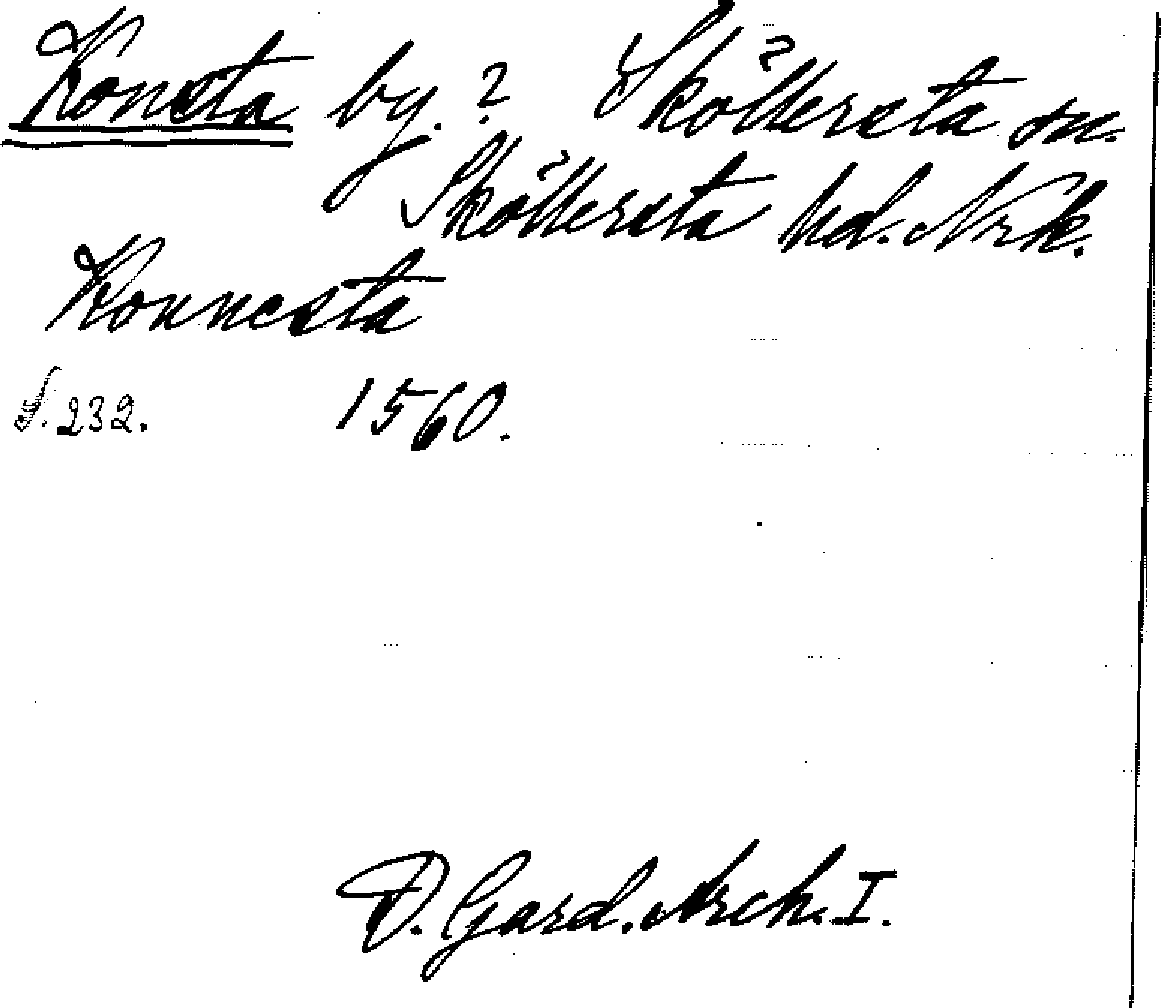 Konsta by.? Sköllersta sn.
Sköllersta hd. Nrk.
Konnesta
S. 232. 1560.
D. Gard. Arch. I.